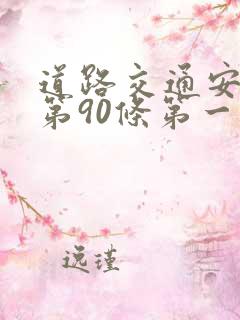 道路交通安
第90條第一
远瑾